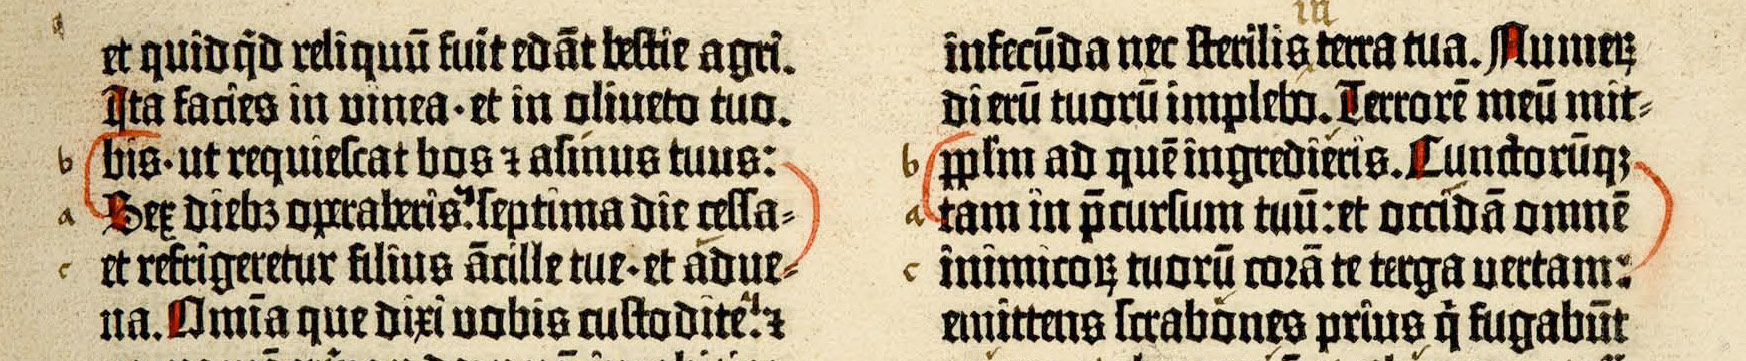 et quidq̄d reliquū fuit edāt bestie agri.
Ita facies in vinea·et in oliueto tuo.
b bis·ut requiescat bos ⁊ asinus tuus:
a Sex diebꝫ oꝑaberis: septima die cessa⸗
c et refrigeretur filius ācille tue·et adue⸗
na. Omīa que dixi vobis custodite: ⁊
in
infecūda nec sterilis terra tua. Numeꝝ
dierū tuorū implebo. Terrorē meū mit⸗
b pp̄lm ad quē ingredieris. Cunctorūqꝫ
a tam in p̄cursum tuū: et occidā omnē
c inimicoꝝ tuorū corā te terga vertam:
emittens scrabones prius q̄ fugabūt